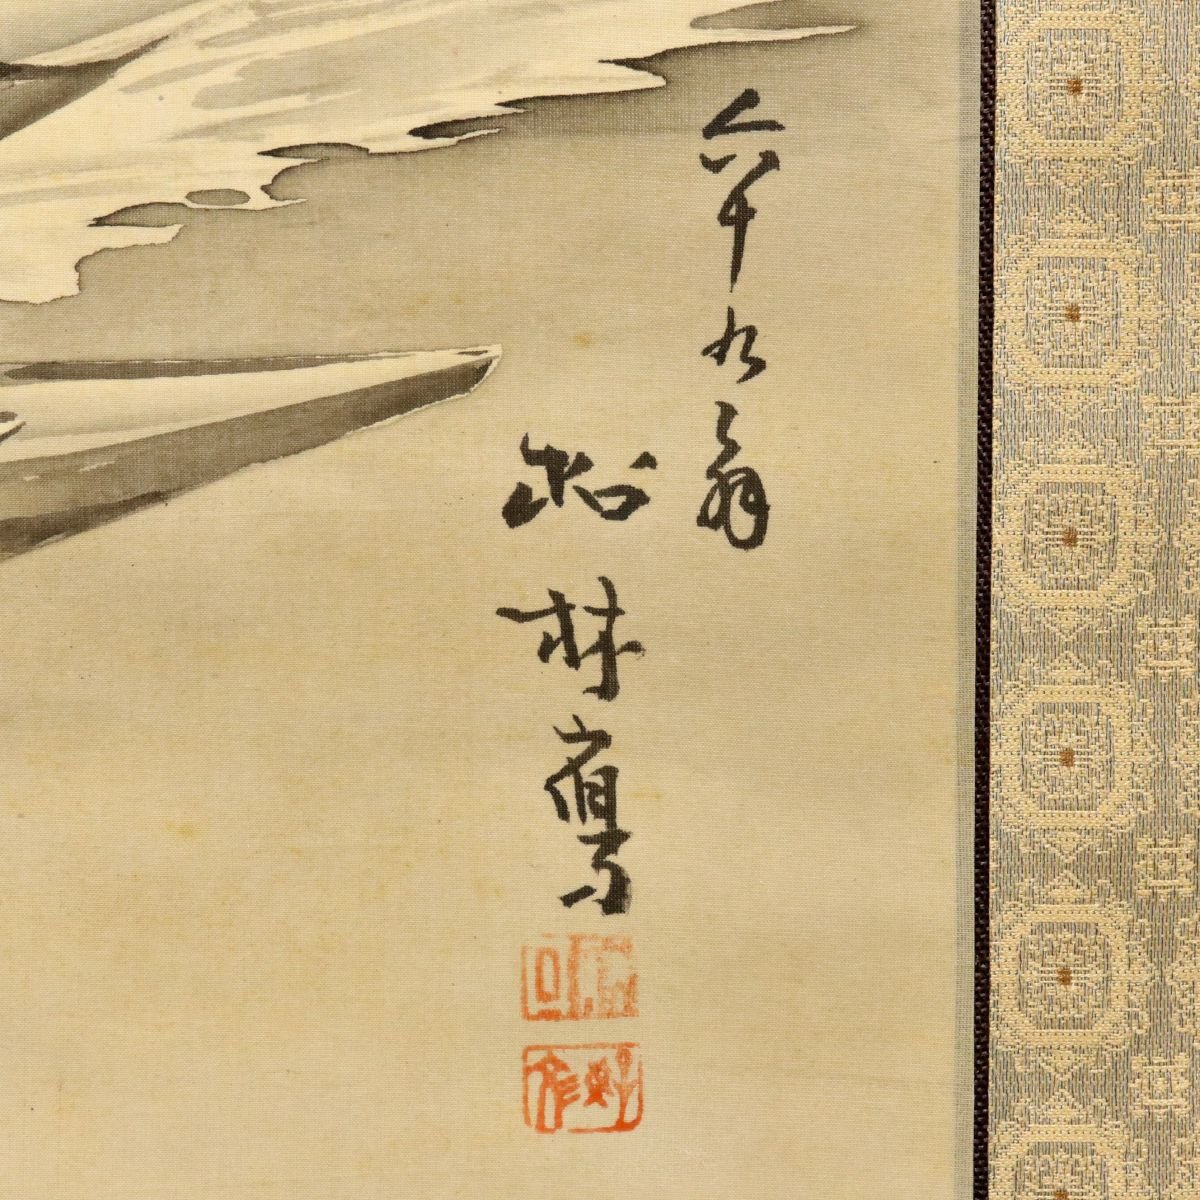 六十九翁
松林寫